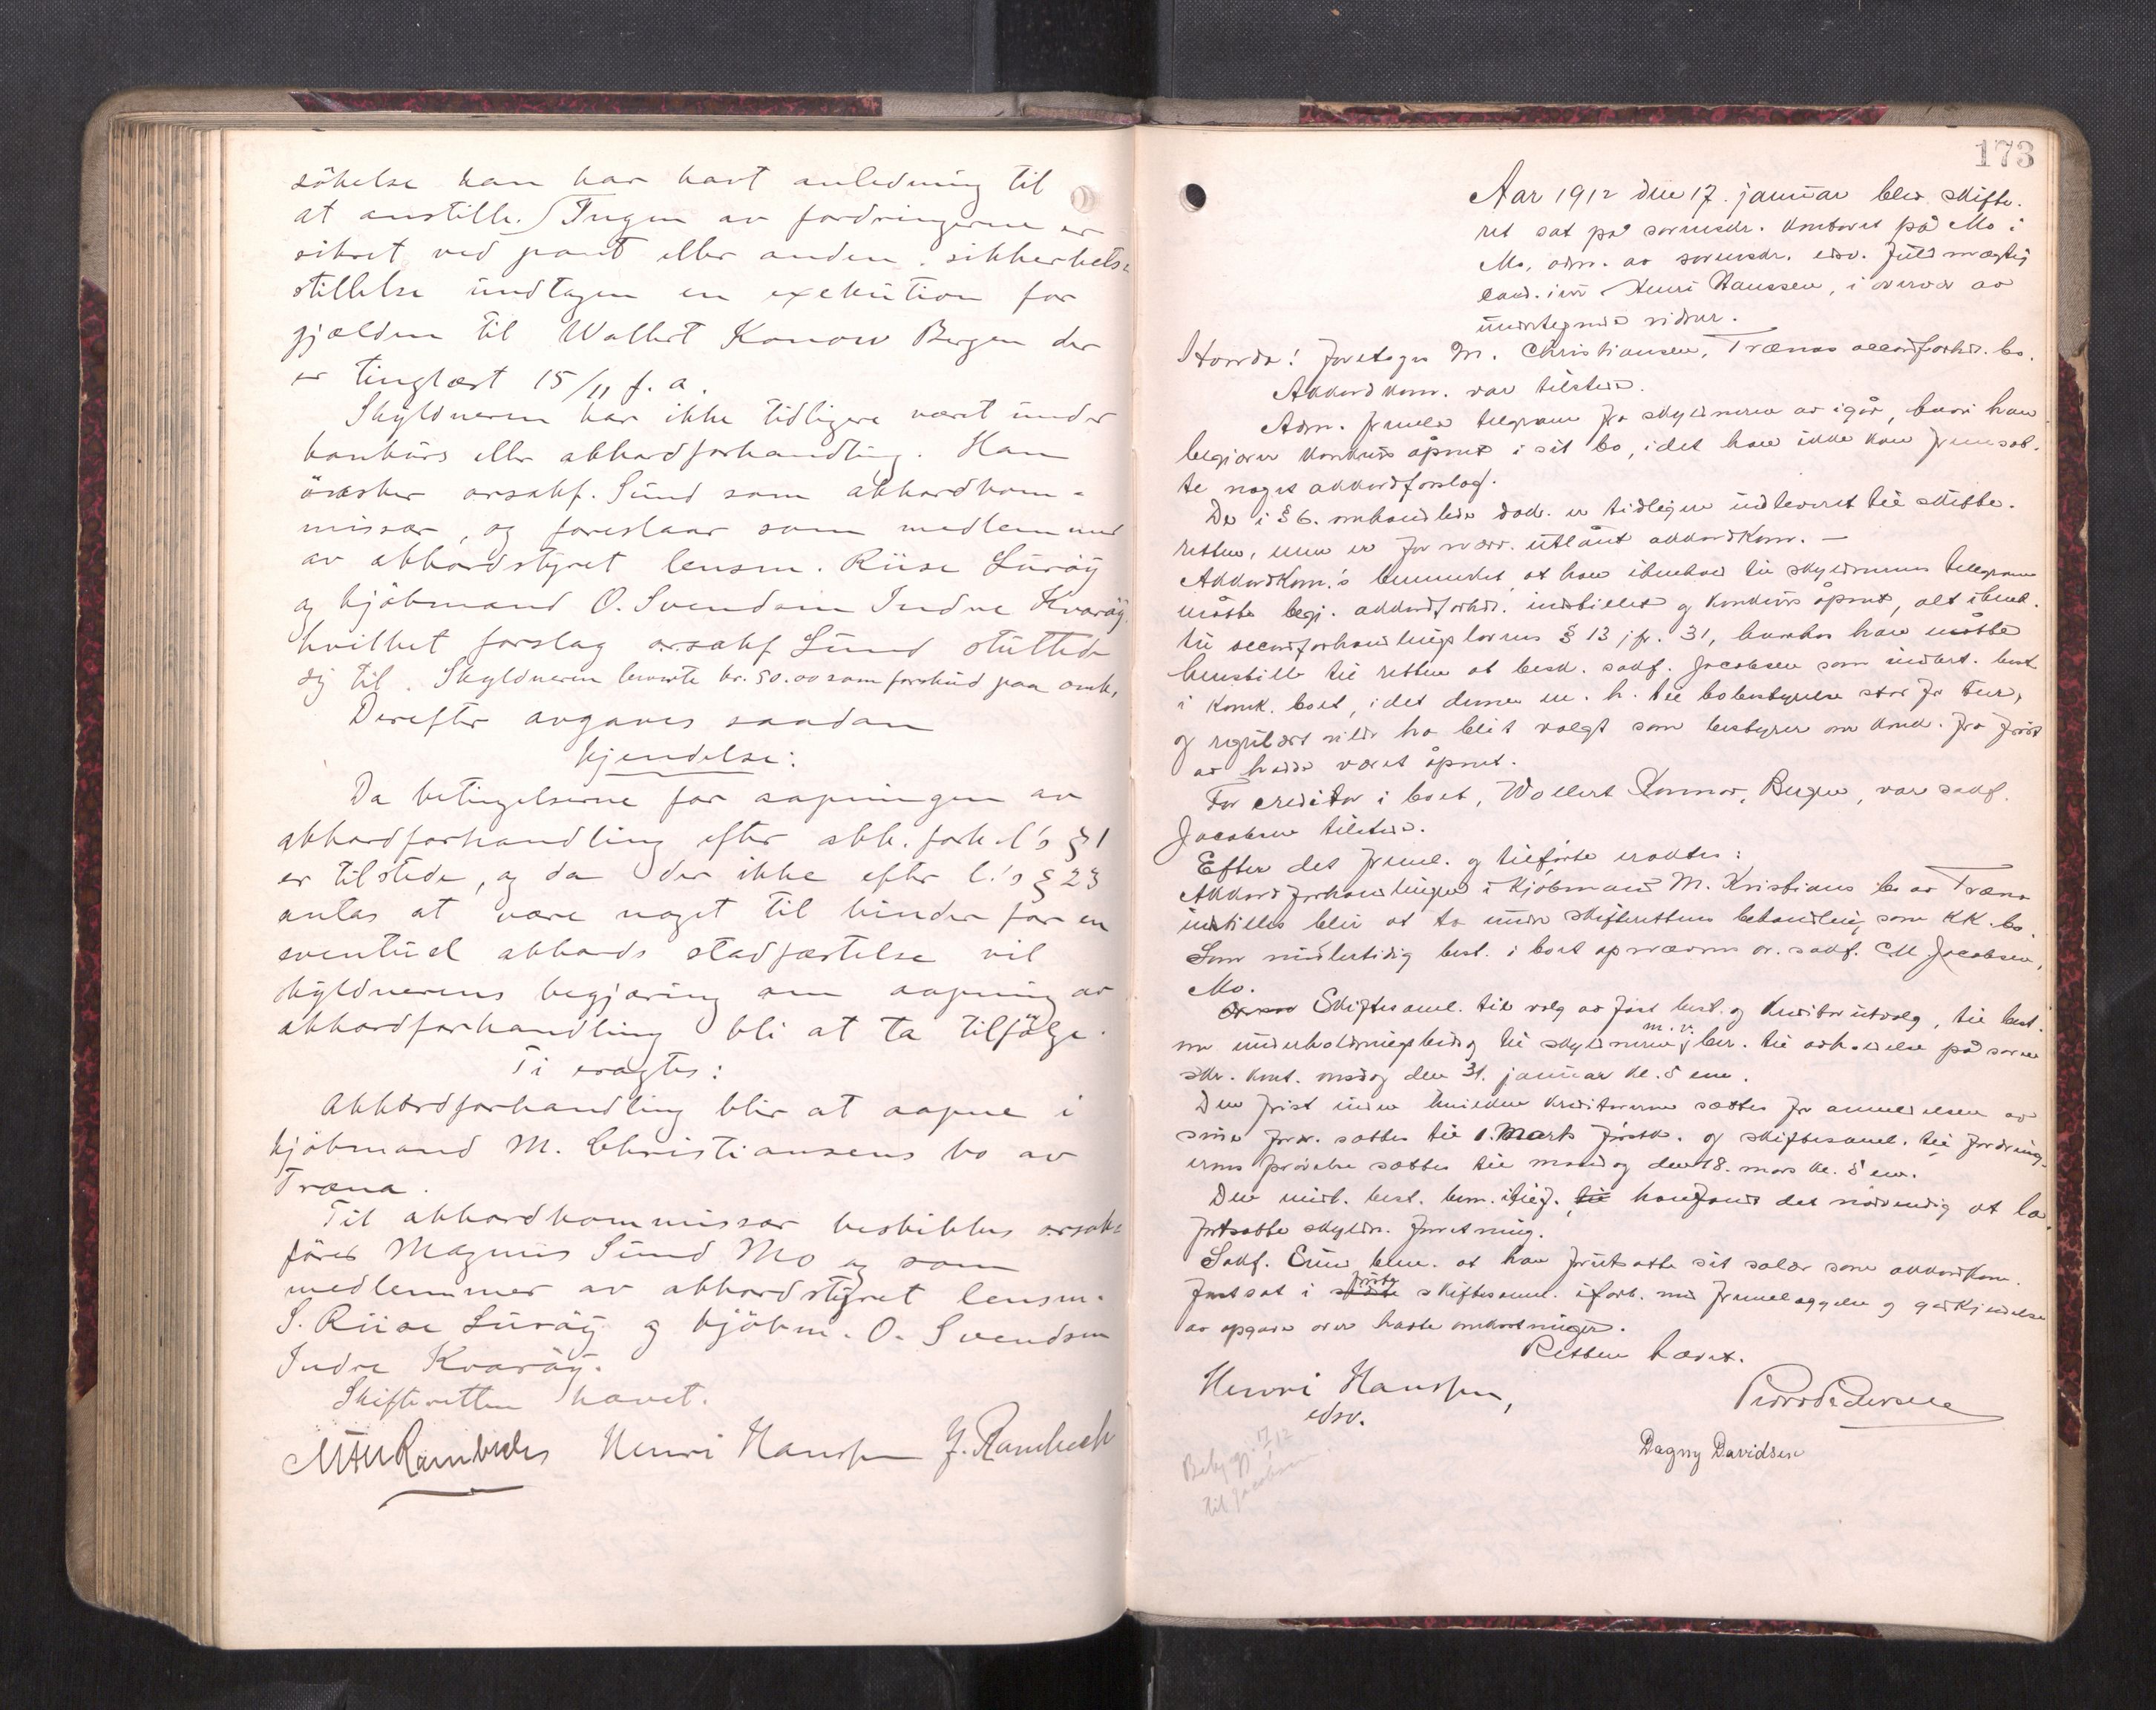 søkelse han har havt anledning til
at anstille. Ingen av fordringerne er
sikret ved pant eller anden sikkerhets-
stillelse undtagen en exekution for
gjælden til Wollert Konow Bergen der
er tinglæst 15/11 f. a.
Skyldneren har ikke tidligere været under
konkurs eller akkordforhandling. Han
ønsker orsakf. Sund som akkordkom-
missær, og foreslaar som medlemmer
av akkordstyret lensm. Riise Lurøy
og kjøbmand O. Svendsen Indre Kvarøy,
hvilket forslag orsakf Sund støttede
sig til. Skyldneren leverte kr. 50.00 som forskud paa omk.
Derefter avgaves saadan
Kjendelse:
Da betingelserne for aapningen av
akkordforhandling efter akk. forh. l's § 1
er tilstede, og da der ikke efter l.'s § 23
antas at være noget til hinder for en
eventuel akkords stadfæstelse vil
skyldnerens begjæring om aapning av
akkordforhandling bli at ta tilfølge.
Ti eragtes:
Akkordforhandling blir at aapne i
kjøbmand M. Christiansens bo av
Træna.
Til akkordkommissær beskikkes orsak-
fører Magnus Sund Mo og som
medlemmer av akkordstyret lensm.
S. Riise Lurøy og kjøbm. O. Svendsen
Indre Kvarøy.
Skifteretten hævet.
Henri Hanssen J. Rambech
173
Aar 1912 den 17. januar blev skifte-
ret sat på sorenskr. kontoret på Mo i
Mo, adm. av sorenskr. edsv. fuldmægtig
cand. jur Henri Hanssen, i overvær av
undertegnede vidner.
Hvorda! Foretoges M. Christiansen, Trænas accordforhdl. bo.
Akkordkom. var tilstede.
Adm. freml. telegram fra skyldneren av igår, hvori han
begjærer konkurs åpnet i sit bo, idet han ikke kan fremsæt-
te noget akkordforslag.
De i § 6. omhandlede dok. er tidligere indleveret til skifte-
retten, men er for nærv. utlånt akkordkom. —
Akkordkom.'s bemerket, at han i henhold til skyldnerens telegram
måtte begj. akkordforhdl. indstillet og konkurs åpnet, alt i henh.
til accordforhandlingslovens § 13 jfr. 31, hvorhos han måtte
henstille til retten at besk. sakf. Jacobsen som midlert. best.
i konk. boet, idet denne m. h. til bobestyrelse står for tur,
og regulært vilde ha blit valgt som bestyrer om konk. fra først
av hadde været åpnet.
For creditor i boet, Wollert Konow, Bergen, var sakf.
Jacobsen tilstede.
Efter det freml. og tilførte eraktes:
Akkordforhandlingen i Kjøbmand M. Kristians bo av Træna
indstilles blir at ta under skifterettens behandling som KK. bo.
Som midlertidig best. i boet opnævnes or. sakf. M Jacobsen,
Mo.
Skiftesaml. til valg av fast best. og kreditorutvalg, til best.
om underholdningsbidrag til skyldneren m. v. ber. til avholdelse på soren
skr. kont. onsdag den 31. januar kl. 5 em.
Den frist inden hvilken kreditorerne sættes for anmeldelsen av
sine fordr. sættes til 1. Marts førstk. og skiftesaml. til fordring-
ernes prøvelse sættes til mandag den 18. mars kl. 5 em.
Den midl. best. bem. han fandt det nødvendig at la
fortsætte skyldn. forretning.
Sakf. Sund bem. at han forutsatte sit salær som akkordkom.
fastsat i første skiftesaml. i forb. med fremlæggelse og godkjendelse
av opgave over havte omkostninger.
Retten hævet.
Henri Hanssen,
edsv.
Dagny Davidsen
til Jacobsen